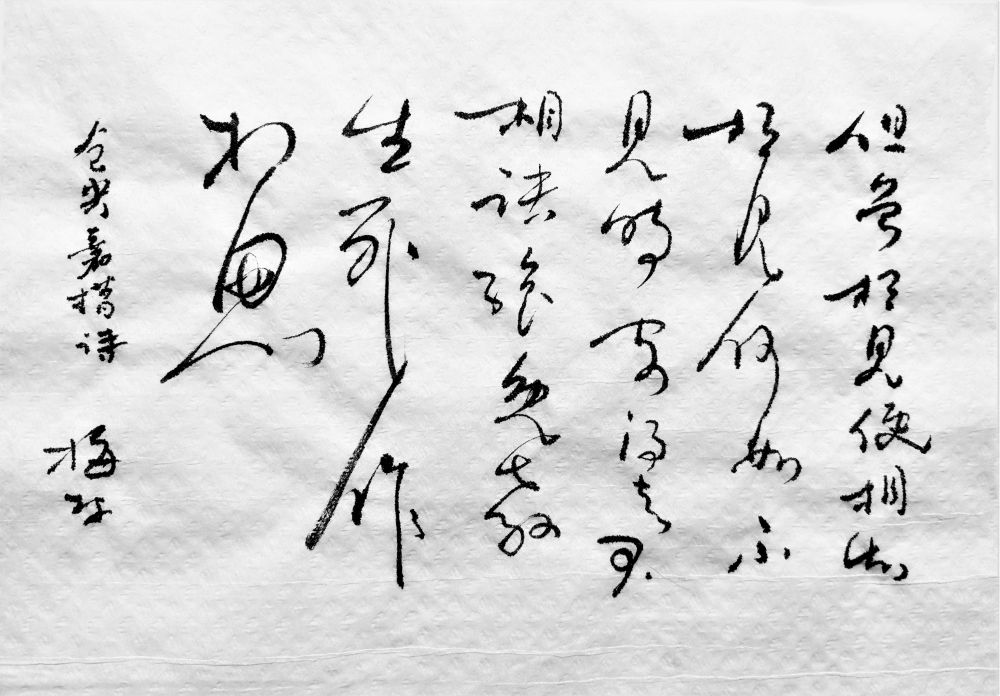 但曾相见便相知
相见何如不
见时安得与君
相诀绝免教
生死作
相思
仓央嘉措诗
梅